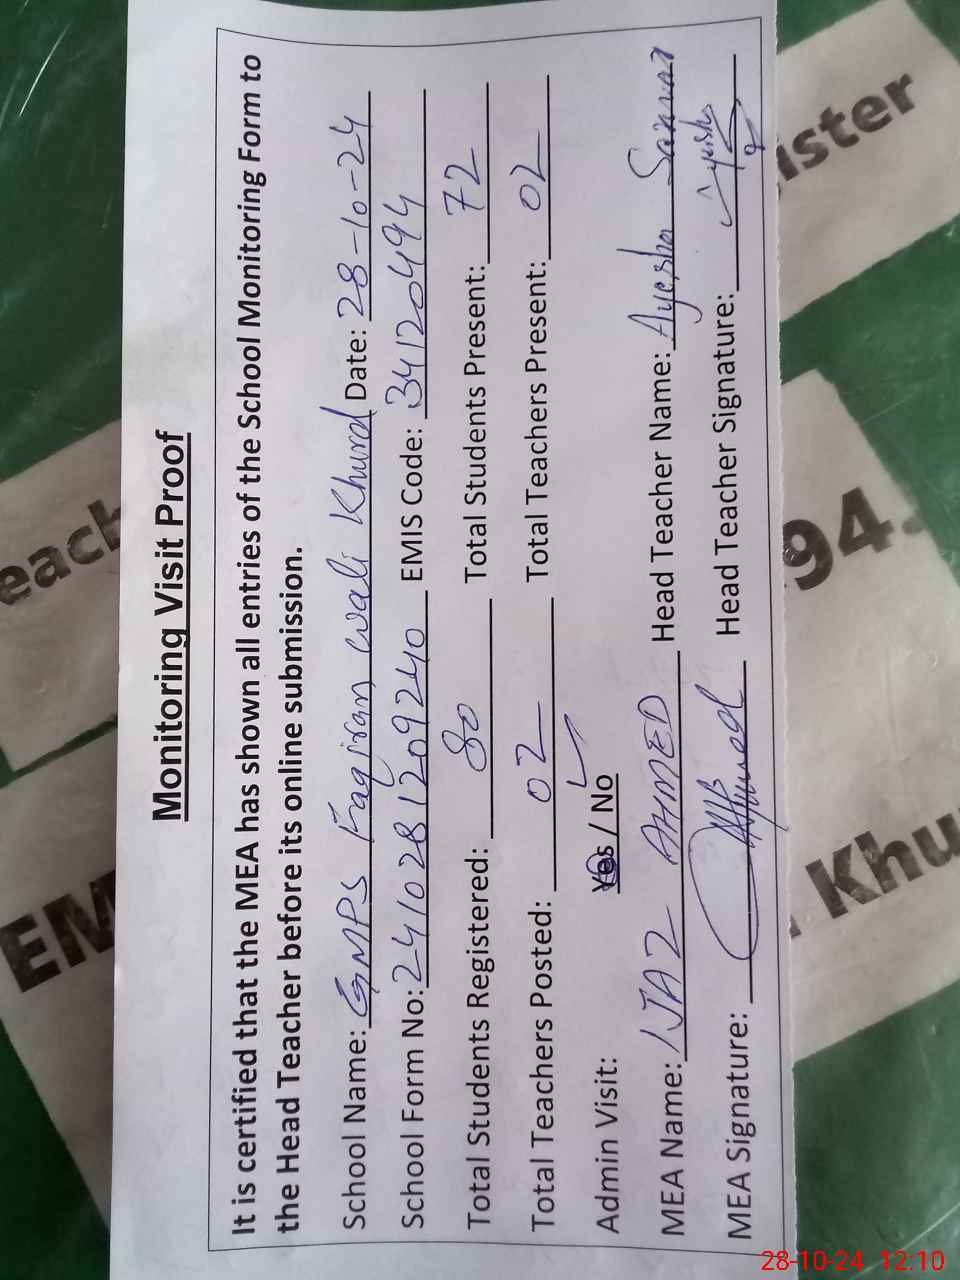 Monitoring Visit Proof
It is certified that the MEA has shown all entries of the School Monitoring Form to
the Head Teacher before its online submission.
School Name: GMPS Faqiran Wali Khurd Date: 28-10-24
School Form No: 2410281209240 EMIS Code: 34120494
Total Students Registered: 80 Total Students Present: 72
Total Teachers Posted: 02 Total Teachers Present: 02
Admin Visit: Yes / No ✓
MEA Name: IJAZ AHMED Head Teacher Name: Ayesha Sanwal
MEA Signature: Ahmed Head Teacher Signature: Ayesha
each
EM
ister
94.
Khu
28-10-24 12:10